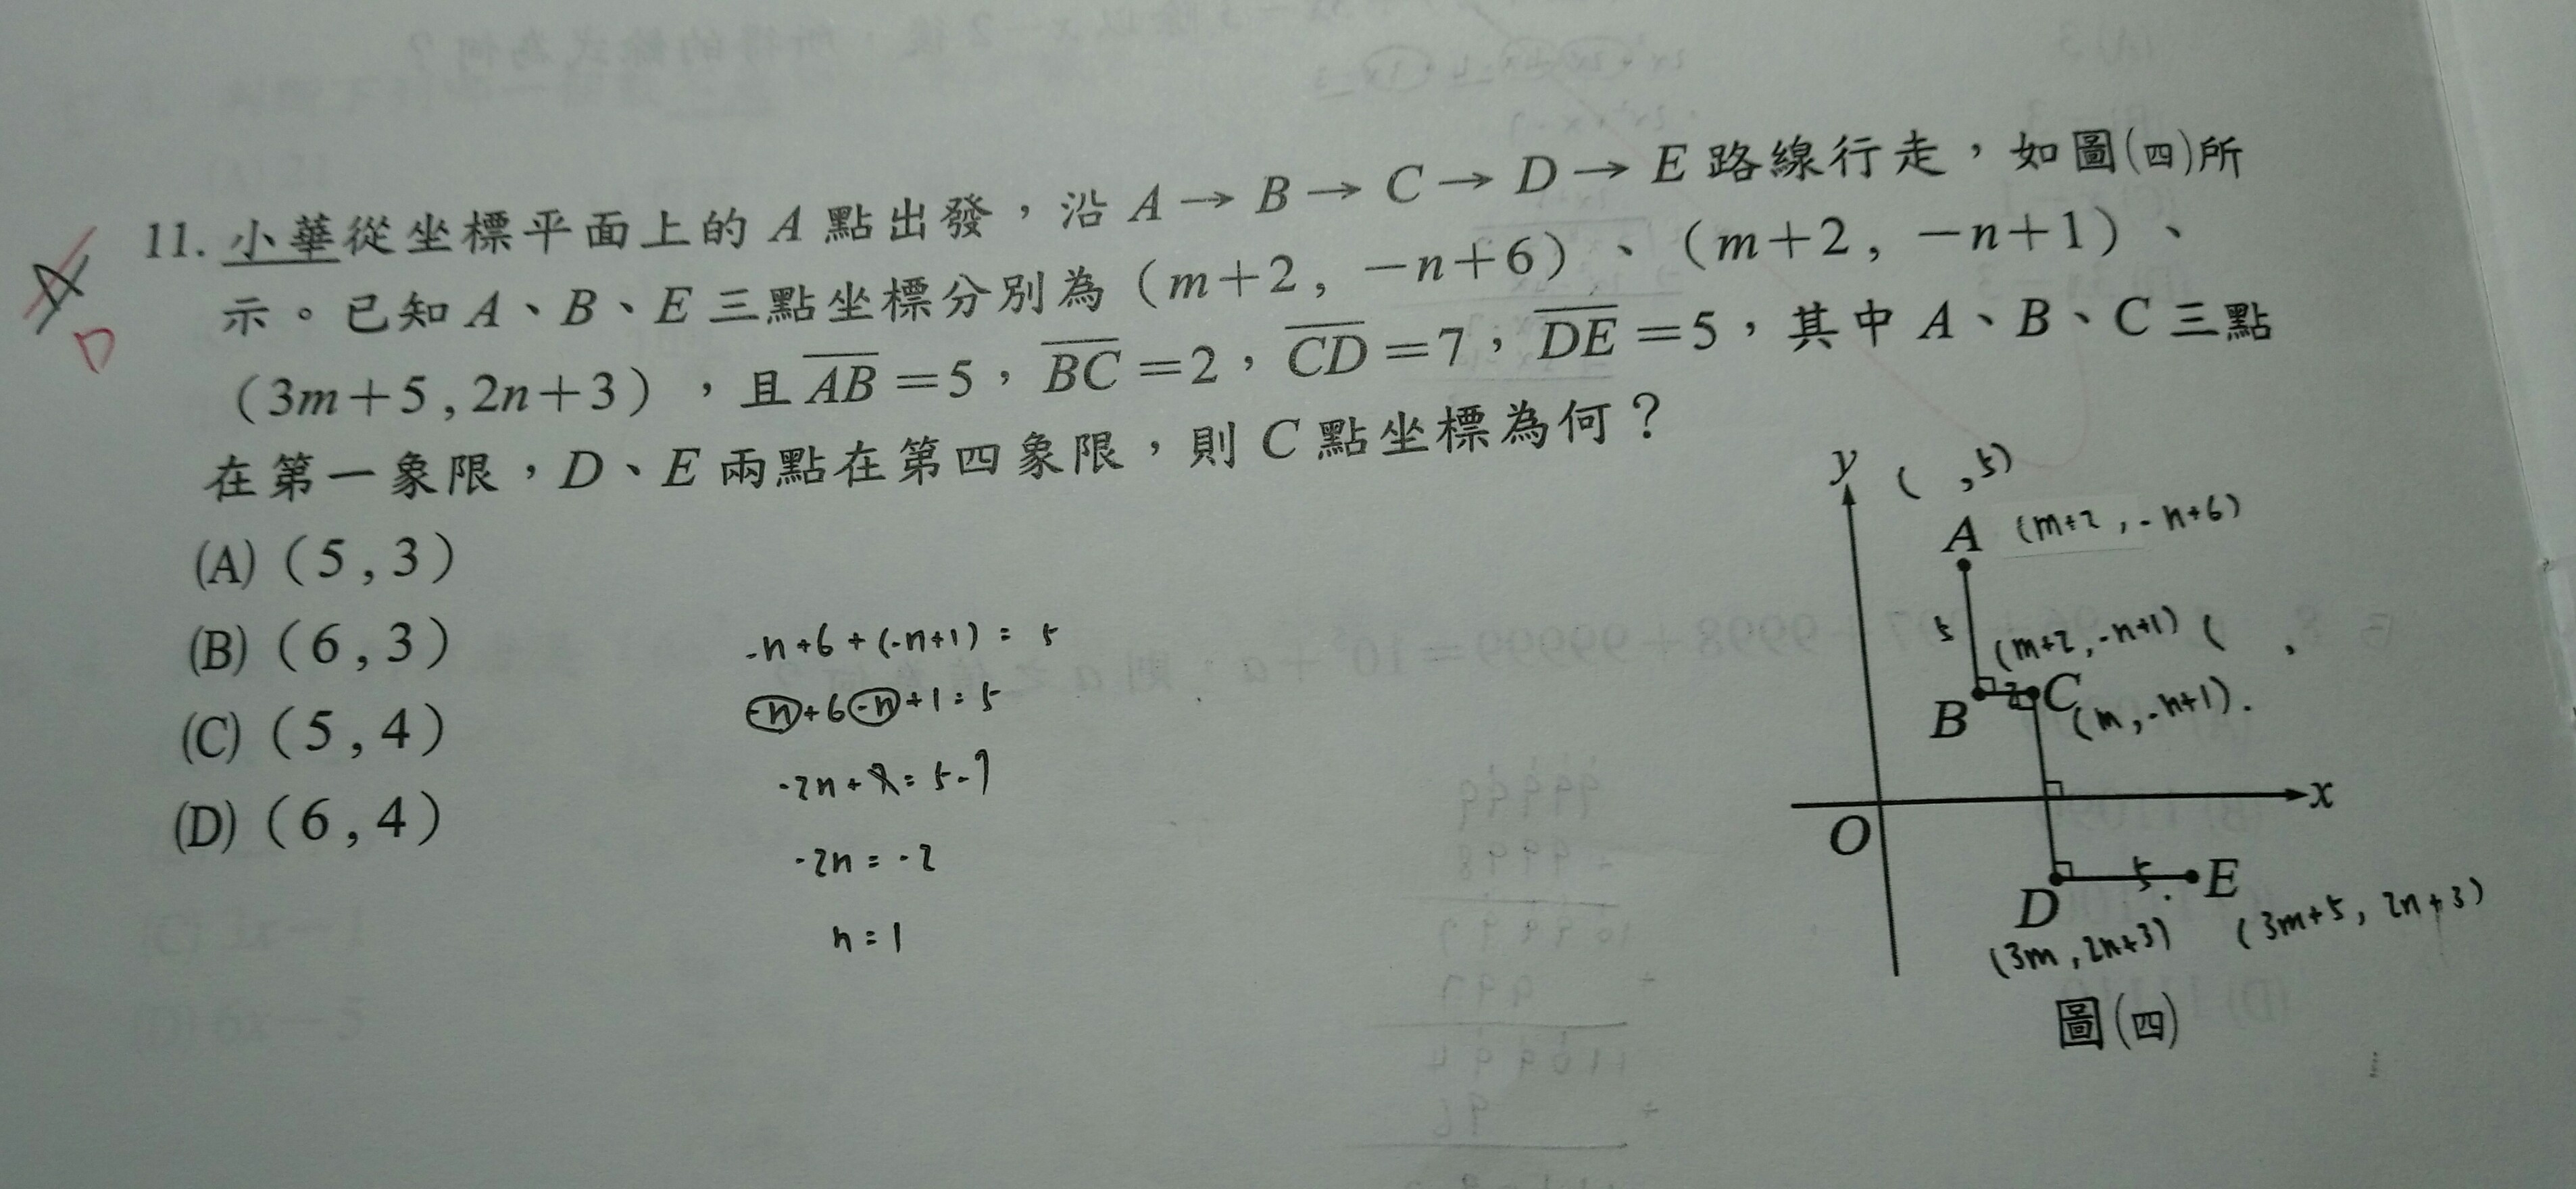 11. 小華從坐標平面上的 A 點出發，沿 A → B → C → D → E 路線行走，如圖(四)所
示。已知 A、B、E 三點坐標分別為（m+2 , −n+6）、（m+2 , −n+1）、
（3m+5 , 2n+3），且 AB =5，BC =2，CD =7，DE =5，其中 A、B、C 三點
在第一象限，D、E 兩點在第四象限，則 C 點坐標為何？
(A)（5 , 3）
(B)（6 , 3）
(C)（5 , 4）
(D)（6 , 4）
D
-n+6+(-n+1) = 5
-n+6-n+1=5
-2n+7=5-7
-2n = -2
n = 1
y ( ,5)
A (m+2 , -n+6)
5
(m+2, -n+1) ( ,
B 2 C (m, -n+1).
O x
D 5. E
(3m, 2n+3) (3m+5, 2n+3)
圖(四)